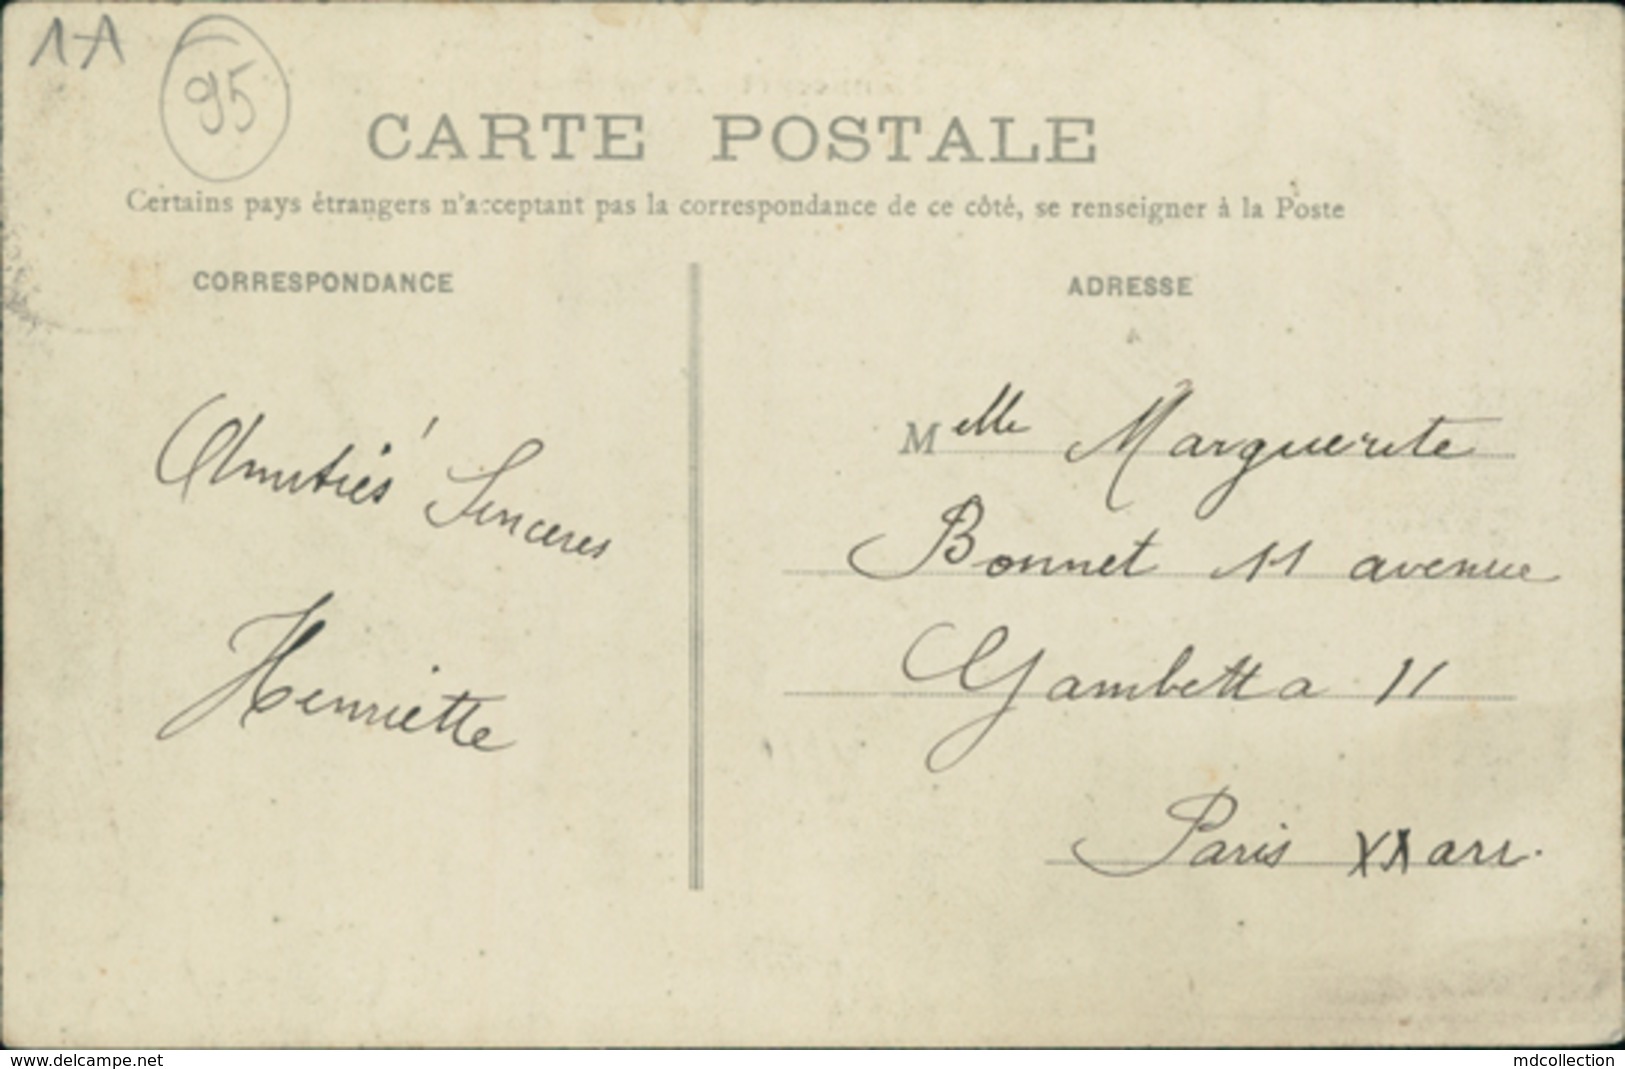 1A
95
CARTE POSTALE
Certains pays étrangers n'acceptant pas la correspondance de ce côté, se renseigner à la Poste
CORRESPONDANCE
Amitiés Sinceres
Henriette
ADRESSE
Melle Marguerite
Bonnet 11 avenue
Gambetta 11
Paris XX arr.
www.delcampe.net
mdcollection